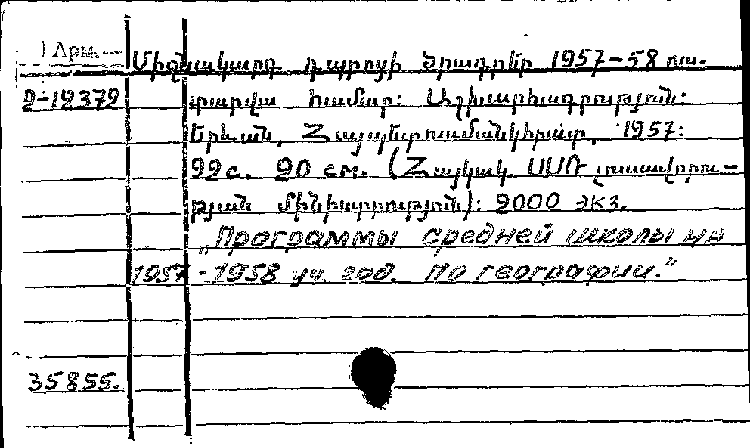 Арм.
Միջնակարգ դպրոցի ծրագրեր 1957-58 ուս.
2-12379 տարվա համար: Աշխարհագրություն:
Երևան, Հայպետուսմանկհրատ, 1957:
22 с. 20 см. (Հայկակ ՍՍՌ լուսավորու-
թյան մինիստրություն): 2000 экз.
„Программы средней школы на
1957-1958 уч. год. По географии."
35855.